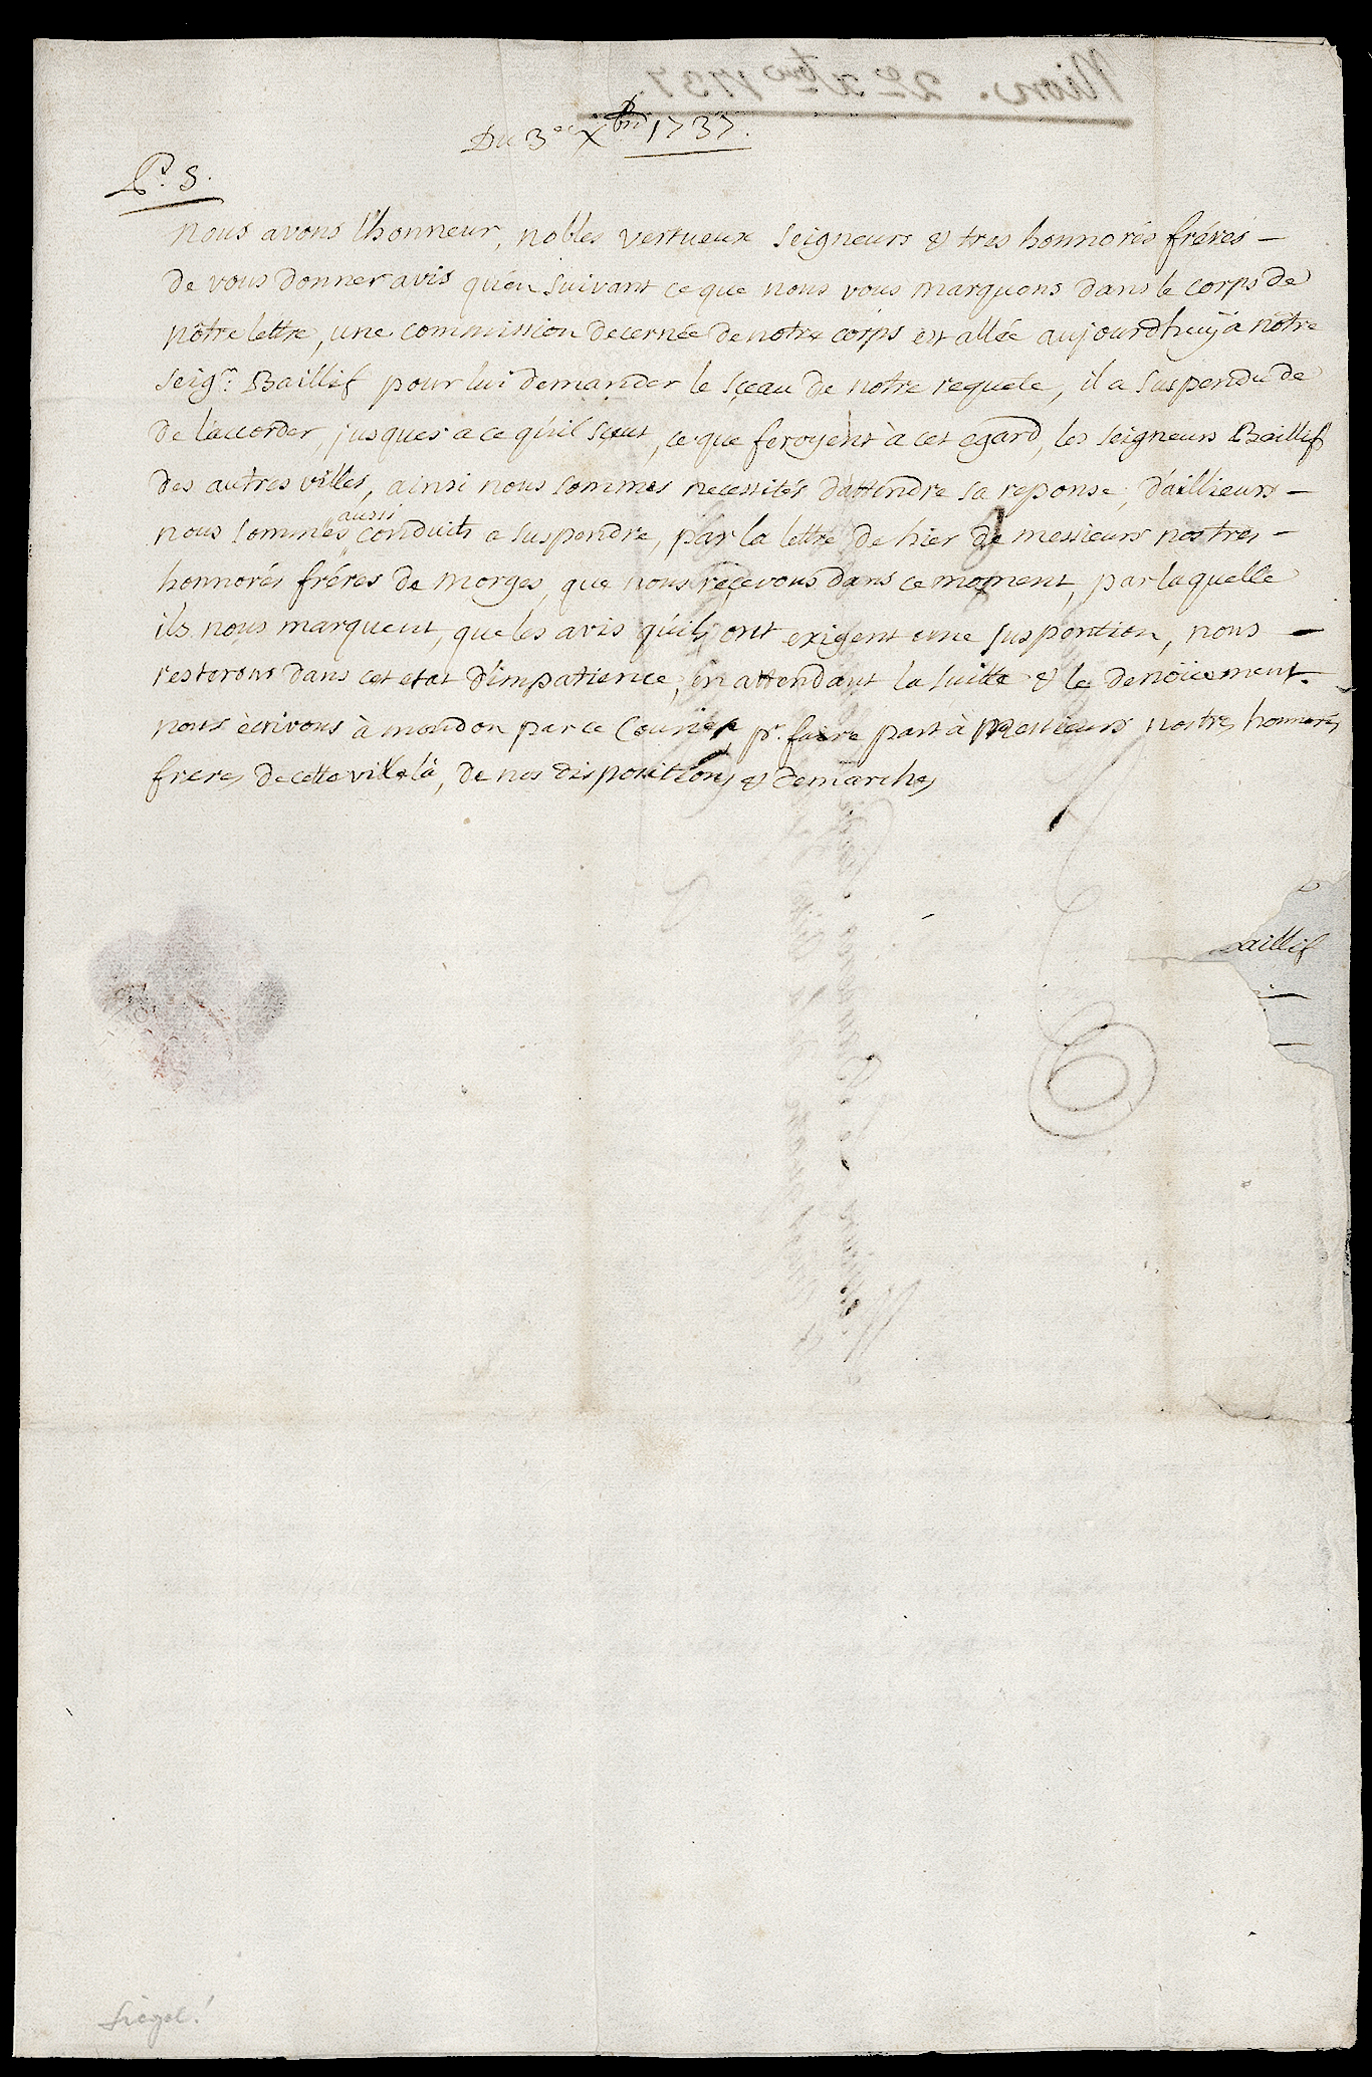 Du 3.e Xbre 1737.
P.S.
Nous avons l'honneur, nobles vertueux Seigneurs & tres honnorés fréres –
de vous donner avis qu'en suivant ce que nous vous marquons dans le corps de
nôtre lettre, une commission decernée de notre corps est allée aujourdhuy à nôtre
Seigr. Baillif pour lui demander le sçeau de notre requete, il a suspendu de
de l'accorder, jusques a ce qu'il sçeut, ce que feroyent à cet egard, les Seigneurs Baillifs
des autres villes, ainsi nous sommes necessités d'attendre sa reponse, d'aillieurs –
nous sommes aussi conduits a suspendre, par la lettre de hier de messieurs nos tres –
honnorés fréres de Morges, que nous reçevons dans ce moment, par laquelle
ils nous marquent, que les avis qu'ils ont exigent une suspention, nous –
resterons dans cet etat d'impatience, en attendant la suitte & le denoüement.
nous ècrivons à moudon par ce Courier, pr. faire part à Messieurs nos tres honnorés
freres de cette ville là, de nos dispositions & demarches
aillif
Siegel!
Nion. 2e Xbre 1737.